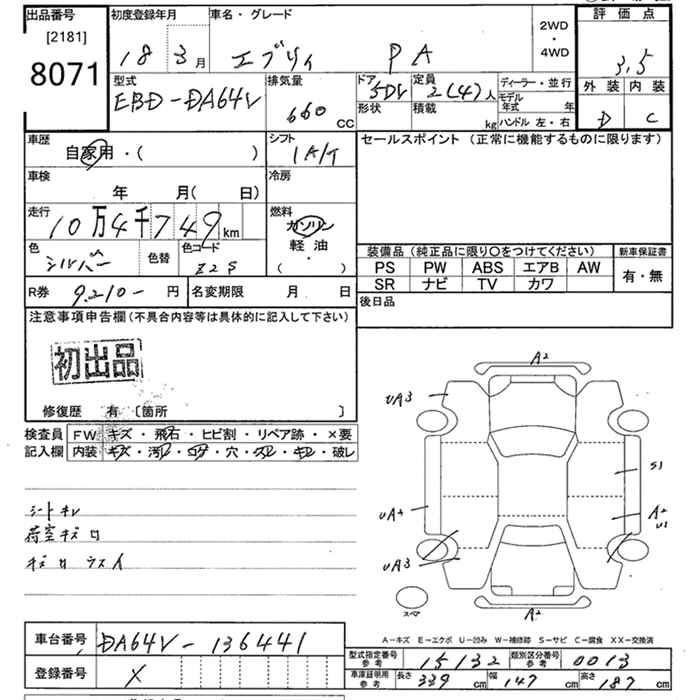 出品番号 [2181] 8071
初度登録年月 18 3月
車名・グレード エブリィ PA
2WD・4WD
評価点 3.5
外装 D 内装 C
型式 EBD-DA64V
排気量 660 CC
ドア形状 5DV
定員 2(4)人
積載 kg
ディーラー・並行
モデル年式 年
ハンドル 左・右
車歴 自家用・( )
シフト 1A/T
セールスポイント (正常に機能するものに限ります)
車検 年 月( 日)
冷房
走行 10万4千749km
燃料 ガソリン 軽油 ( ・ )
色 シルバー 色替 色コード Z2S
装備品 (純正品に限り〇をつけてください)
新車保証書 有・無
PS PW ABS エアB AW
SR ナビ TV カワ
R券 9.210- 円 名変期限 月 日
後日品
注意事項申告欄(不具合内容等は具体的に記入して下さい)
初出品
修復歴 有 〔箇所 〕
検査員記入欄
FW キズ・飛石・ヒビ割・リペア跡・×要
内装 キズ・汚レ・コゲ・穴・スレ・キレ・破レ
シートキレ
荷室キズロ
A2
UA3
S1
UA4
A2
U1
UA3
A2
スペア
A-キズ E-エクボ U-凹み W-補修跡 S-サビ C-腐食 XX-交換済
車台番号 DA64V-136441
登録番号 X
型式指定番号 参考 15132 類別区分番号 参考 0013
車庫証明用 参考 長さ 339 cm 幅 147 cm 高さ 187 cm